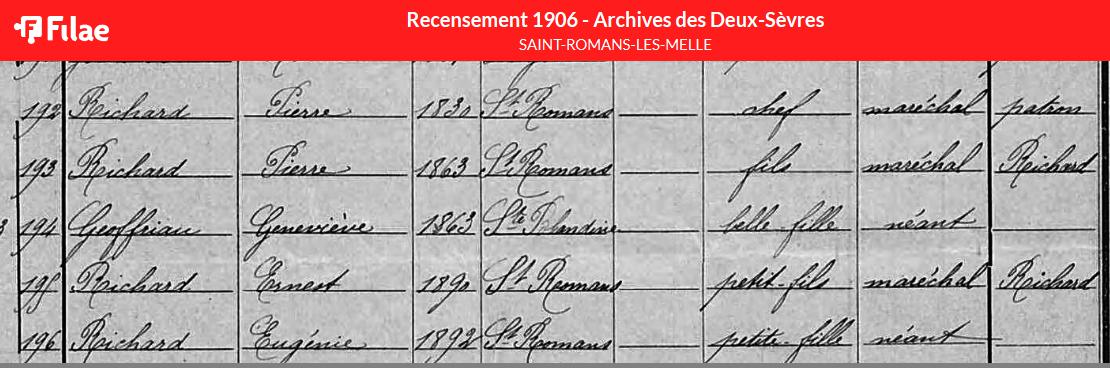 Filae
Recensement 1906 - Archives des Deux-Sèvres
SAINT-ROMANS-LES-MELLE
192 Richard Pierre 1830 St Romans chef maréchal patron
193 Richard Pierre 1863 St Romans fils maréchal Richard
194 Geoffriau Geneviève 1863 Ste Blandine belle-fille néant
195 Richard Ernest 1890 St Romans petit-fils maréchal Richard
196 Richard Eugénie 1892 St Romans petite-fille néant